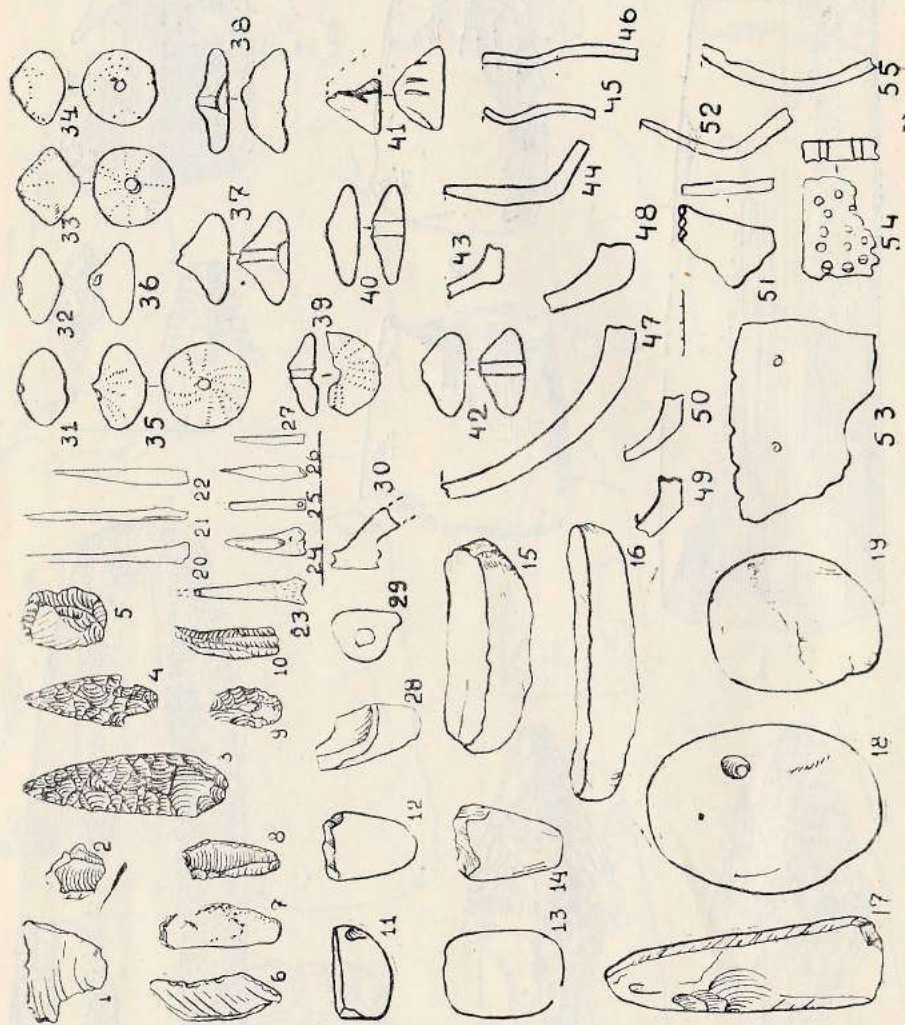 1
2
3
4
5
6
7
8
9
10
11
12
13
14
15
16
17
18
19
20
21
22
23
24
25
26
27
28
29
30
31
32
33
34
35
36
37
38
39
40
41
42
43
44
45
46
47
48
49
50
51
52
53
54
55